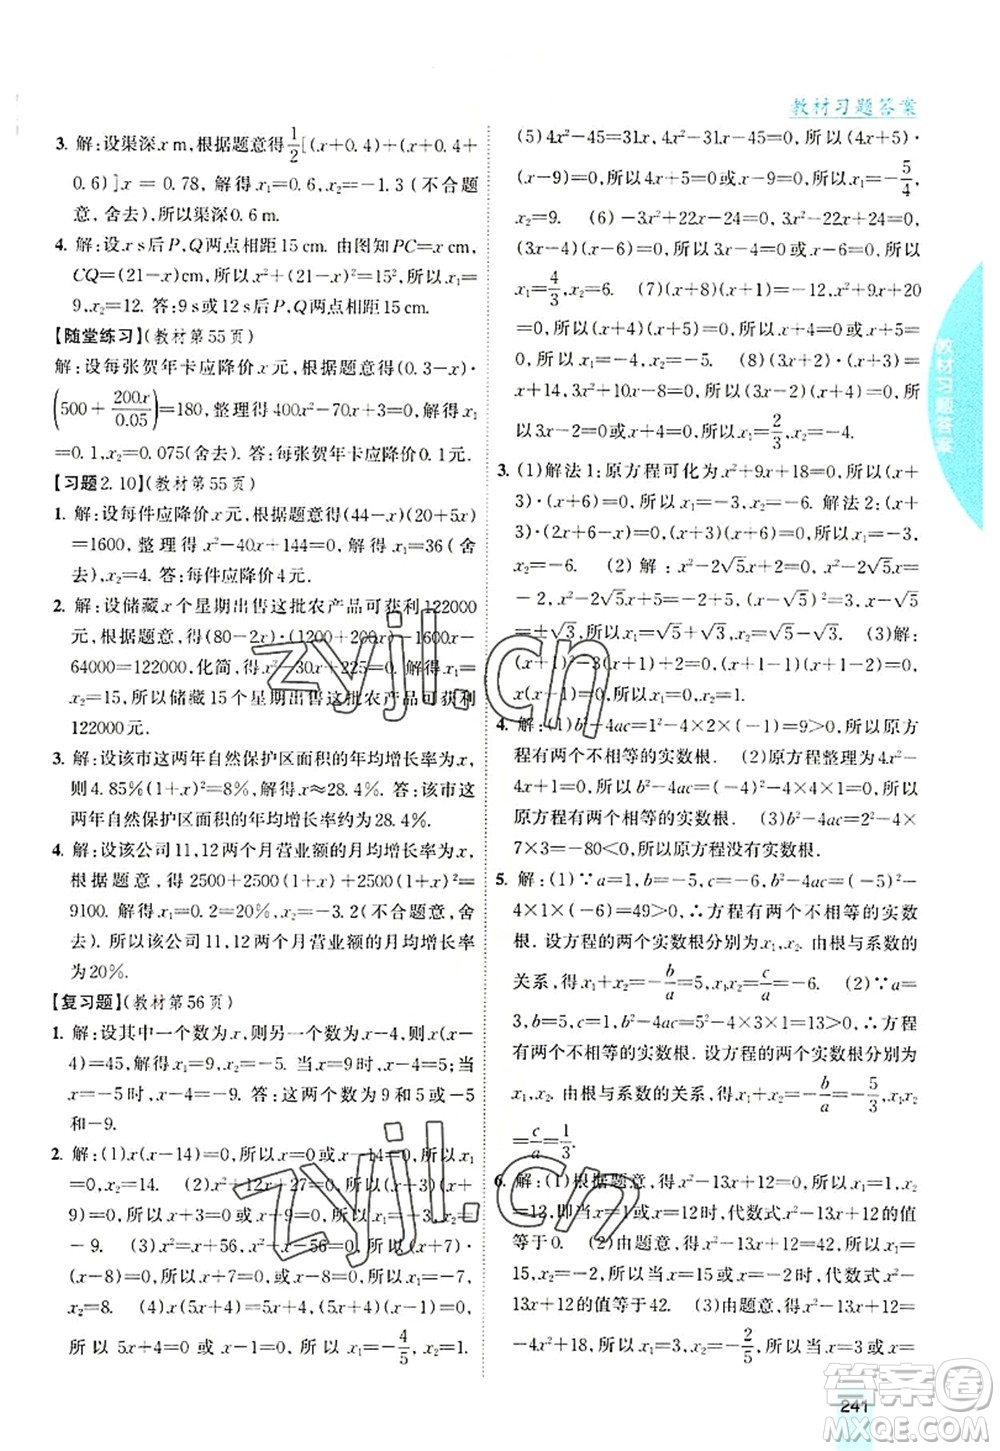 教材习题答案
3. 解:设渠深x m,根据题意得1/2[(x+0.4)+(x+0.4+
0.6)]x=0.78,解得x₁=0.6,x₂=-1.3(不合题
意,舍去),所以渠深0.6 m.
4. 解:设x s后P,Q两点相距15 cm. 由图知PC=x cm,
CQ=(21-x)cm,所以x²+(21-x)²=15²,所以x₁=
9,x₂=12. 答:9 s或12 s后P,Q两点相距15 cm.
【随堂练习】(教材第55页)
解:设每张贺年卡应降价x元,根据题意得(0.3-x)·
(500+200x/0.05)=180,整理得400x²-70x+3=0,解得x₁
=0.1,x₂=0.075(舍去). 答:每张贺年卡应降价0.1元.
【习题2.10】(教材第55页)
1. 解:设每件应降价x元,根据题意得(44-x)(20+5x)
=1600,整理得x²-40x+144=0,解得x₁=36(舍
去),x₂=4. 答:每件应降价4元.
2. 解:设储藏x个星期出售这批农产品可获利122000
元,根据题意,得(80-2x)·(1200+200x)-1600x-
64000=122000,化简,得x²-30x+225=0,解得x₁=
x₂=15,所以储藏15个星期出售这批农产品可获利
122000元.
3. 解:设该市这两年自然保护区面积的年均增长率为x,
则4.85%(1+x)²=8%,解得x≈28.4%. 答:该市这
两年自然保护区面积的年均增长率约为28.4%.
4. 解:设该公司11,12两个月营业额的月均增长率为x,
根据题意,得2500+2500(1+x)+2500(1+x)²=
9100. 解得x₁=0.2=20%,x₂=-3.2(不合题意,舍
去). 所以该公司11,12两个月营业额的月均增长率
为20%.
【复习题】(教材第56页)
1. 解:设其中一个数为x,则另一个数为x-4,所以x(x-
4)=45,解得x₁=9,x₂=-5. 当x=9时,x-4=5;当x
=-5时,x-4=-9. 答:这两个数为9和5或-5
和-9.
2. 解:(1)x(x-14)=0,所以x=0或x-14=0,所以x₁
=0,x₂=14. (2)x²+12x+27=0,所以(x+3)(x+
9)=0,所以x+3=0或x+9=0,所以x₁=-3,x₂=
-9. (3)x²=x+56,x²-x-56=0,所以(x+7)·
(x-8)=0,所以x+7=0或x-8=0,所以x₁=-7,
x₂=8. (4)x(5x+4)=5x+4,所以(5x+4)(x-1)=0,
所以5x+4=0或x-1=0,所以x₁=-4/5,x₂=1.
(5)4x²-45=31x,4x²-31x-45=0,所以(4x+5)
·(x-9)=0,所以4x+5=0或x-9=0,所以x₁=-5/4,
x₂=9. (6)-3x²+22x-24=0,3x²-22x+24=0,
(3x-4)(x-6)=0,所以3x-4=0或x-6=0,所以
x₁=4/3,x₂=6. (7)(x+8)(x+1)=-12,x²+9x+20
=0,所以(x+4)(x+5)=0,所以x+4=0或x+5=
0,所以x₁=-4,x₂=-5. (8)(3x+2)(x+3)=
x+14,3x²+10x-8=0,所以(3x-2)(x+4)=0,所
以3x-2=0或x+4=0,所以x₁=2/3,x₂=-4.
3. (1)解法1:原方程可化为x²+9x+18=0,所以(x+
3)·(x+6)=0,所以x₁=-3,x₂=-6. 解法2:(x+
3)·(2x+6-x)=0,(x+3)(x+6)=0,所以x₁=-3,
x₂=-6. (2)解:x²-2√5x+2=0,x²-2√5x=
-2,x²-2√5x+5=-2+5,所以(x-√5)²=3,x-√5
=±√3,所以x₁=√5+√3,x₂=√5-√3. (3)解:
(x+1)²-3(x+1)+2=0,所以(x+1-1)(x+1-2)=0,
x(x-1)=0,所以x₁=0,x₂=1.
4. 解:(1)b²-4ac=1²-4×2×(-1)=9>0,所以原方
程有两个不相等的实数根. (2)原方程整理为4x²-
4x+1=0,所以b²-4ac=(-4)²-4×4×1=0,所以原
方程有两个相等的实数根. (3)b²-4ac=(-2)²-4×
7×3=-80<0,所以原方程没有实数根.
5. 解:(1)∵a=1,b=-5,c=-6,∴b²-4ac=(-5)²-
4×1×(-6)=49>0,∴方程有两个不相等的实数
根. 设方程的两个实数根分别为x₁,x₂. 由根与系数的
关系,得x₁+x₂=-b/a=5,x₁x₂=c/a=-6. (2)∵a=
3,b=5,c=1,∴b²-4ac=5²-4×3×1=13>0,∴方程
有两个不相等的实数根. 设方程的两个实数根分别为
x₁,x₂,由根与系数的关系,得x₁+x₂=-b/a=-5/3,x₁x₂
=c/a=1/3.
6. 解:(1)根据题意,得x²-13x+12=0,解得x₁=1,x₂
=12,所以当x=1或x=12时,代数式x²-13x+12的值
等于0. (2)由题意,得x²-13x+12=42,即x²-13x-30
=0,解得x₁=-2,x₂=15,所以当x=-2或x=15时,代数式x²-
13x+12的值等于42. (3)由题意,得x²-13x+12=
-4x²+18,解得x₁=3,x₂=-2/5,所以当x=3或x=
教材习题答案
zyjl.cn
zyjl.cn
答案圈
241